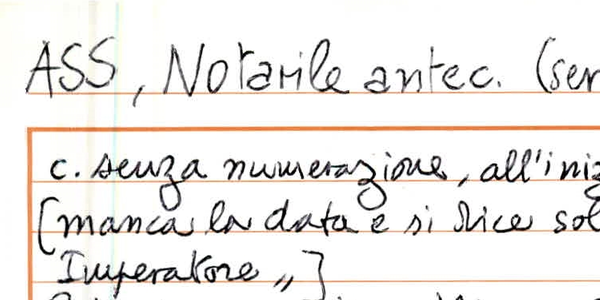 ASS, Notarile antec. (ser
c. senza numerazione, all'iniz
[manca la data e si dice sol
Imperatore „]